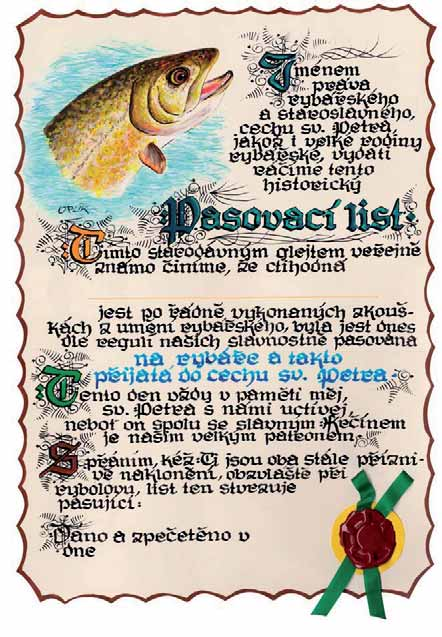 Jménem
práva
rybářského
a staroslavného,
cechu sv. Petra,
jakož i velké rodiny
rybářské, vydati
ráčíme tento
historický
Pasovací list:
Tímto starodávným glejtem veřejně
známo činíme, že ctihodná
jest po řádně vykonaných zkouš-
kách z umění rybářského, byla jest dnes
dle regulí našich slavnostně pasována
na rybáře a takto
přijata do cechu sv. Petra.
Tento den vždy v paměti měj,
sv. Petra s námi uctívej,
neboť on spolu se slavným Řečínem
je naším velkým patronem,
S přáním, kéž Ti jsou oba stále přízni-
vě nakloněni, obzvláště při
rybolovu, list ten stvrzuje
pasující:
Dáno a zpečetěno v
dne